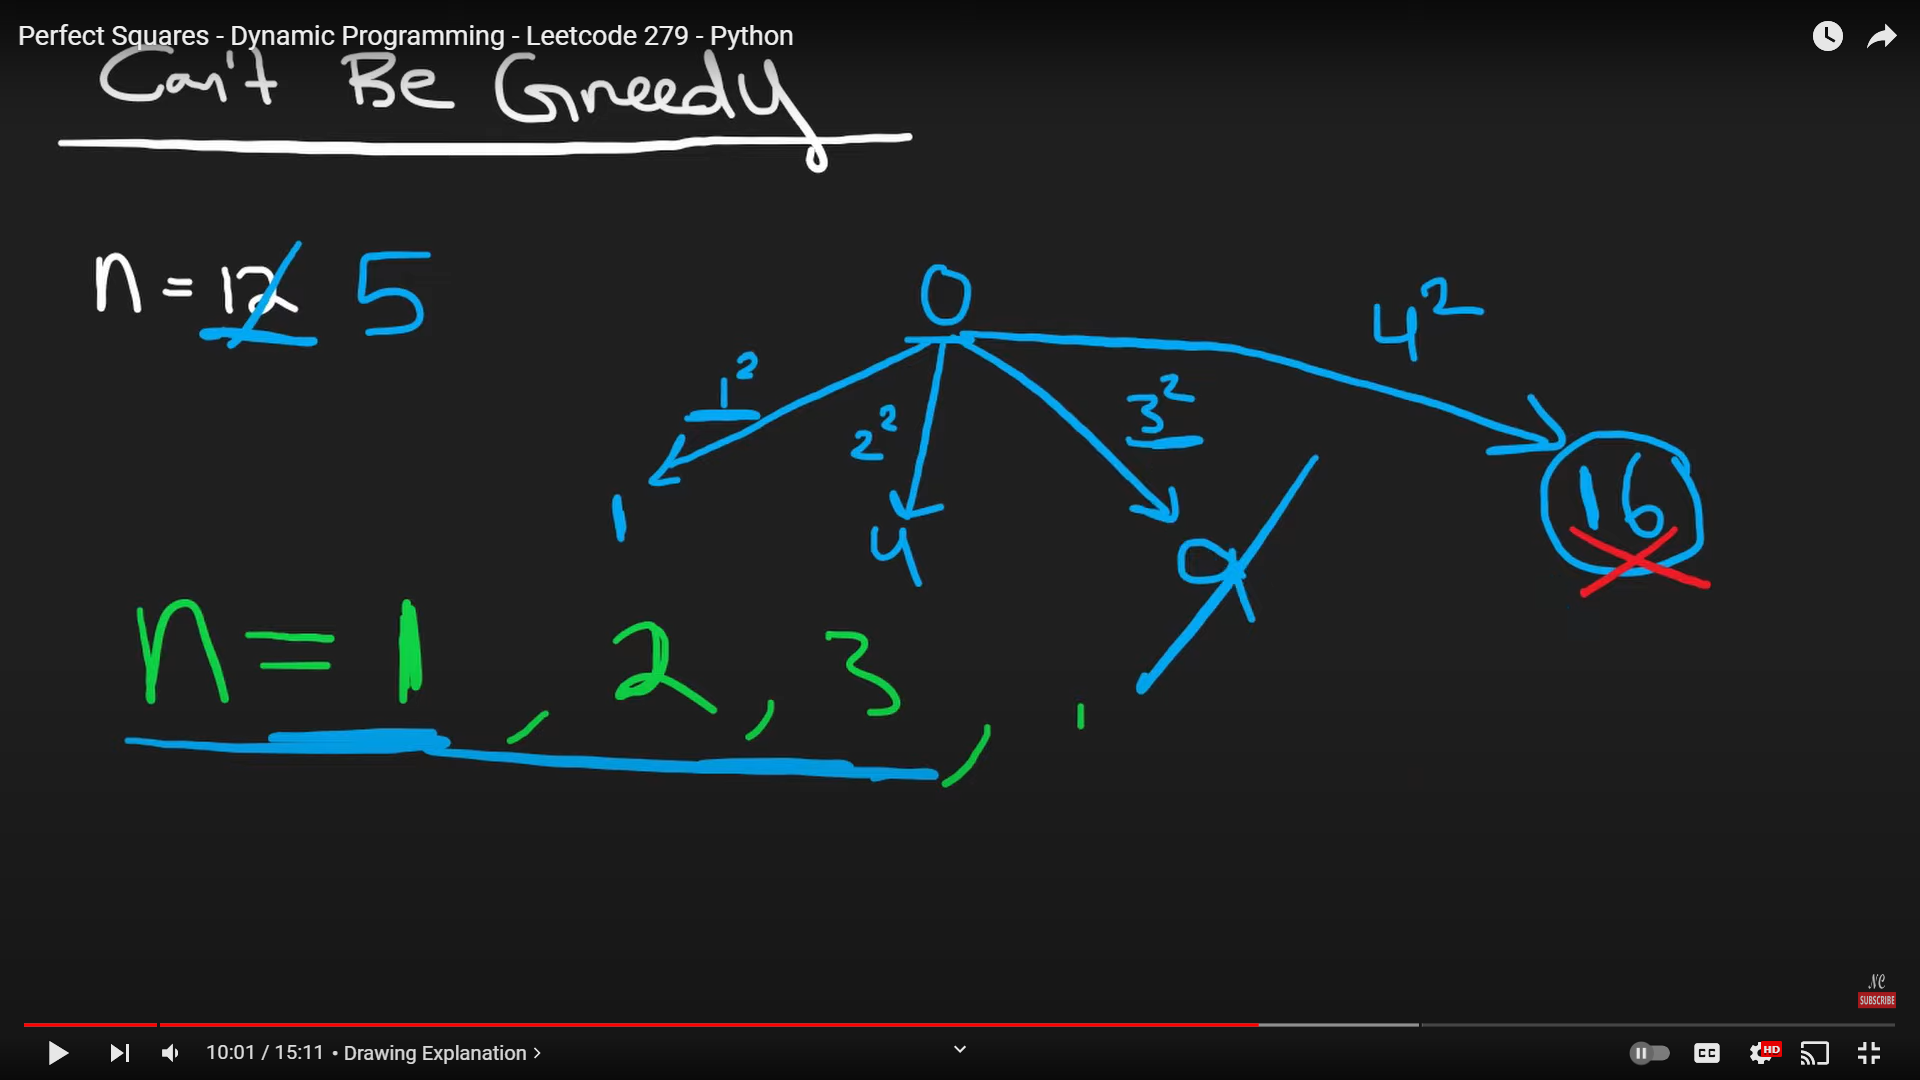 Perfect Squares - Dynamic Programming - Leetcode 279 - Python
Can't Be Greedy
n = 12 5
0
4²
1²
2²
3²
1
4
9
16
n = 1 , 2 , 3 ,
NC
SUBSCRIBE
10:01 / 15:11 • Drawing Explanation >
CC
HD